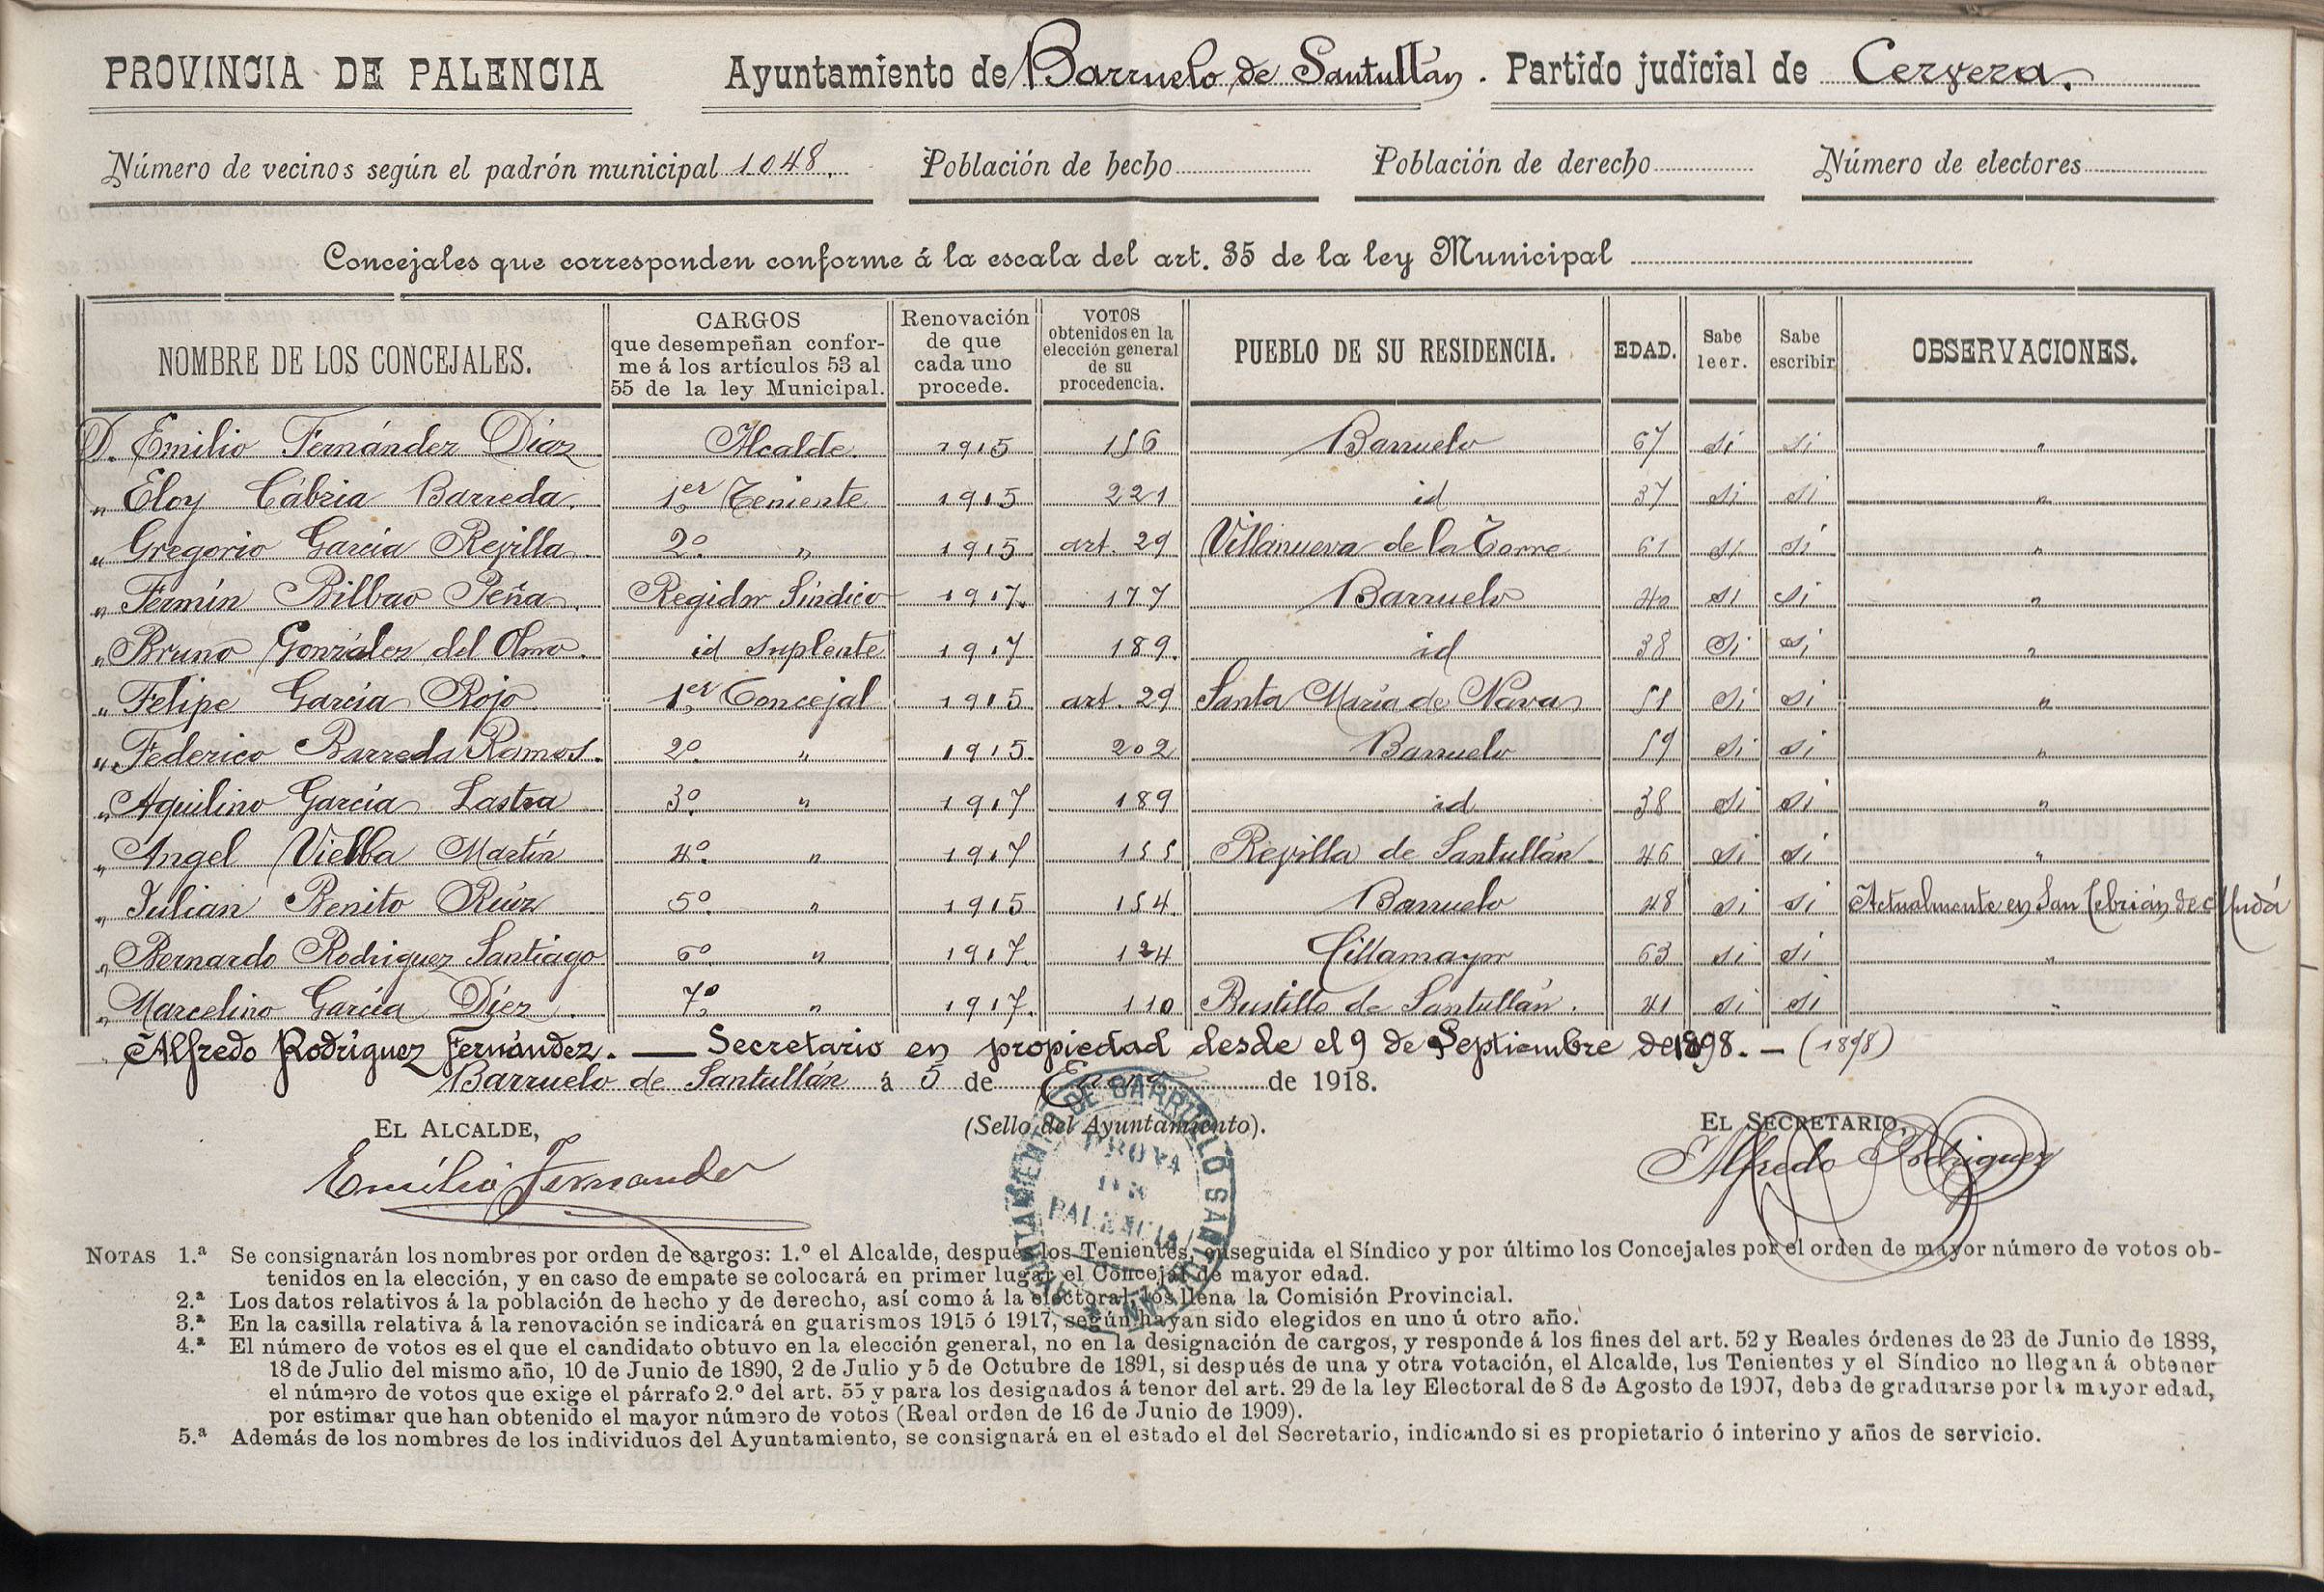 PROVINCIA DE PALENCIA Ayuntamiento de Barruelo de Santullán. Partido judicial de Cervera.
Número de vecinos según el padrón municipal 1048. Población de hecho Población de derecho Número de electores
Concejales que corresponden conforme á la escala del art. 35 de la ley Municipal
NOMBRE DE LOS CONCEJALES. CARGOS que desempeñan conforme á los artículos 53 al 55 de la ley Municipal. Renovación de que cada uno procede. VOTOS obtenidos en la elección general de su procedencia. PUEBLO DE SU RESIDENCIA. EDAD. Sabe leer. Sabe escribir OBSERVACIONES.
D. Emilio Fernández Díaz Alcalde. 1915 156 Barruelo 67 si si "
" Eloy Cábria Barreda. 1er Teniente 1915 221 id 37 si si "
" Gregorio García Revilla 2º. " 1915 art. 29 Villanueva de la Torre 61 si si "
" Fermín Bilbao Peña. Regidor Síndico 1917. 177 Barruelo 40 si si "
" Bruno González del Olmo. id suplente 1917 189. id 38 si si "
" Felipe García Rojo. 1er Concejal 1915 art. 29 Santa María de Nava 51 si si "
" Federico Barreda Ramos. 2º. " 1915. 202 Barruelo 59 si si "
" Aquilino García Lastra 3º. " 1917 189 id 38 si si "
" Angel Vielba Martín 4º. " 1917 155 Revilla de Santullán. 46 si si "
" Julian Benito Ruiz 5º. " 1915 154. Barruelo 48 si si Actualmente en San Cebrián de Mudá
" Bernardo Rodriguez Santiago 6º. " 1917. 124 Cillamayor 63 si si "
" Marcelino García Díez. 7º. " 1917. 110 Bustillo de Santullán. 41 si si "
Alfredo Rodríguez Fernández. — Secretario en propiedad desde el 9 de Septiembre de 1898. — (1898)
Barruelo de Santullán á 5 de Enero de 1918.
EL ALCALDE, (Sello del Ayuntamiento). EL SECRETARIO,
Emilio Fernandez Alfredo Rodriguez
AYUNTAMIENTO DE BARRUELO SANTULLAN
PROVA
DE
PALENCIA
NOTAS 1.ª Se consignarán los nombres por orden de cargos: 1.º el Alcalde, después los Tenientes, enseguida el Síndico y por último los Concejales por el orden de mayor número de votos ob-
tenidos en la elección, y en caso de empate se colocará en primer lugar el Concejal de mayor edad.
2.ª Los datos relativos á la población de hecho y de derecho, así como á la electoral, los llena la Comisión Provincial.
3.ª En la casilla relativa á la renovación se indicará en guarismos 1915 ó 1917, según hayan sido elegidos en uno ú otro año.
4.ª El número de votos es el que el candidato obtuvo en la elección general, no en la designación de cargos, y responde á los fines del art. 52 y Reales órdenes de 23 de Junio de 1888,
18 de Julio del mismo año, 10 de Junio de 1890, 2 de Julio y 5 de Octubre de 1891, si después de una y otra votación, el Alcalde, los Tenientes y el Síndico no llegan á obtener
el número de votos que exige el párrafo 2.º del art. 55 y para los designados á tenor del art. 29 de la ley Electoral de 8 de Agosto de 1907, debe de graduarse por la mayor edad,
por estimar que han obtenido el mayor número de votos (Real orden de 16 de Junio de 1909).
5.ª Además de los nombres de los individuos del Ayuntamiento, se consignará en el estado el del Secretario, indicando si es propietario ó interino y años de servicio.